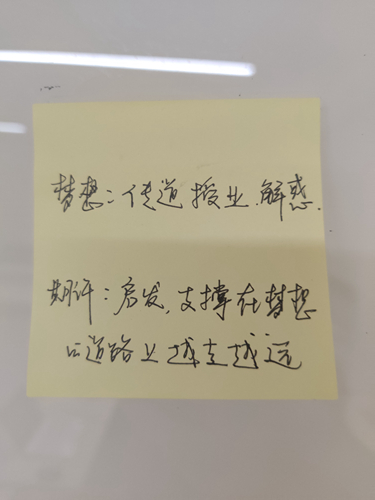 梦想：传道授业.解惑.
期许：启发,支撑在梦想
的道路上越走越远